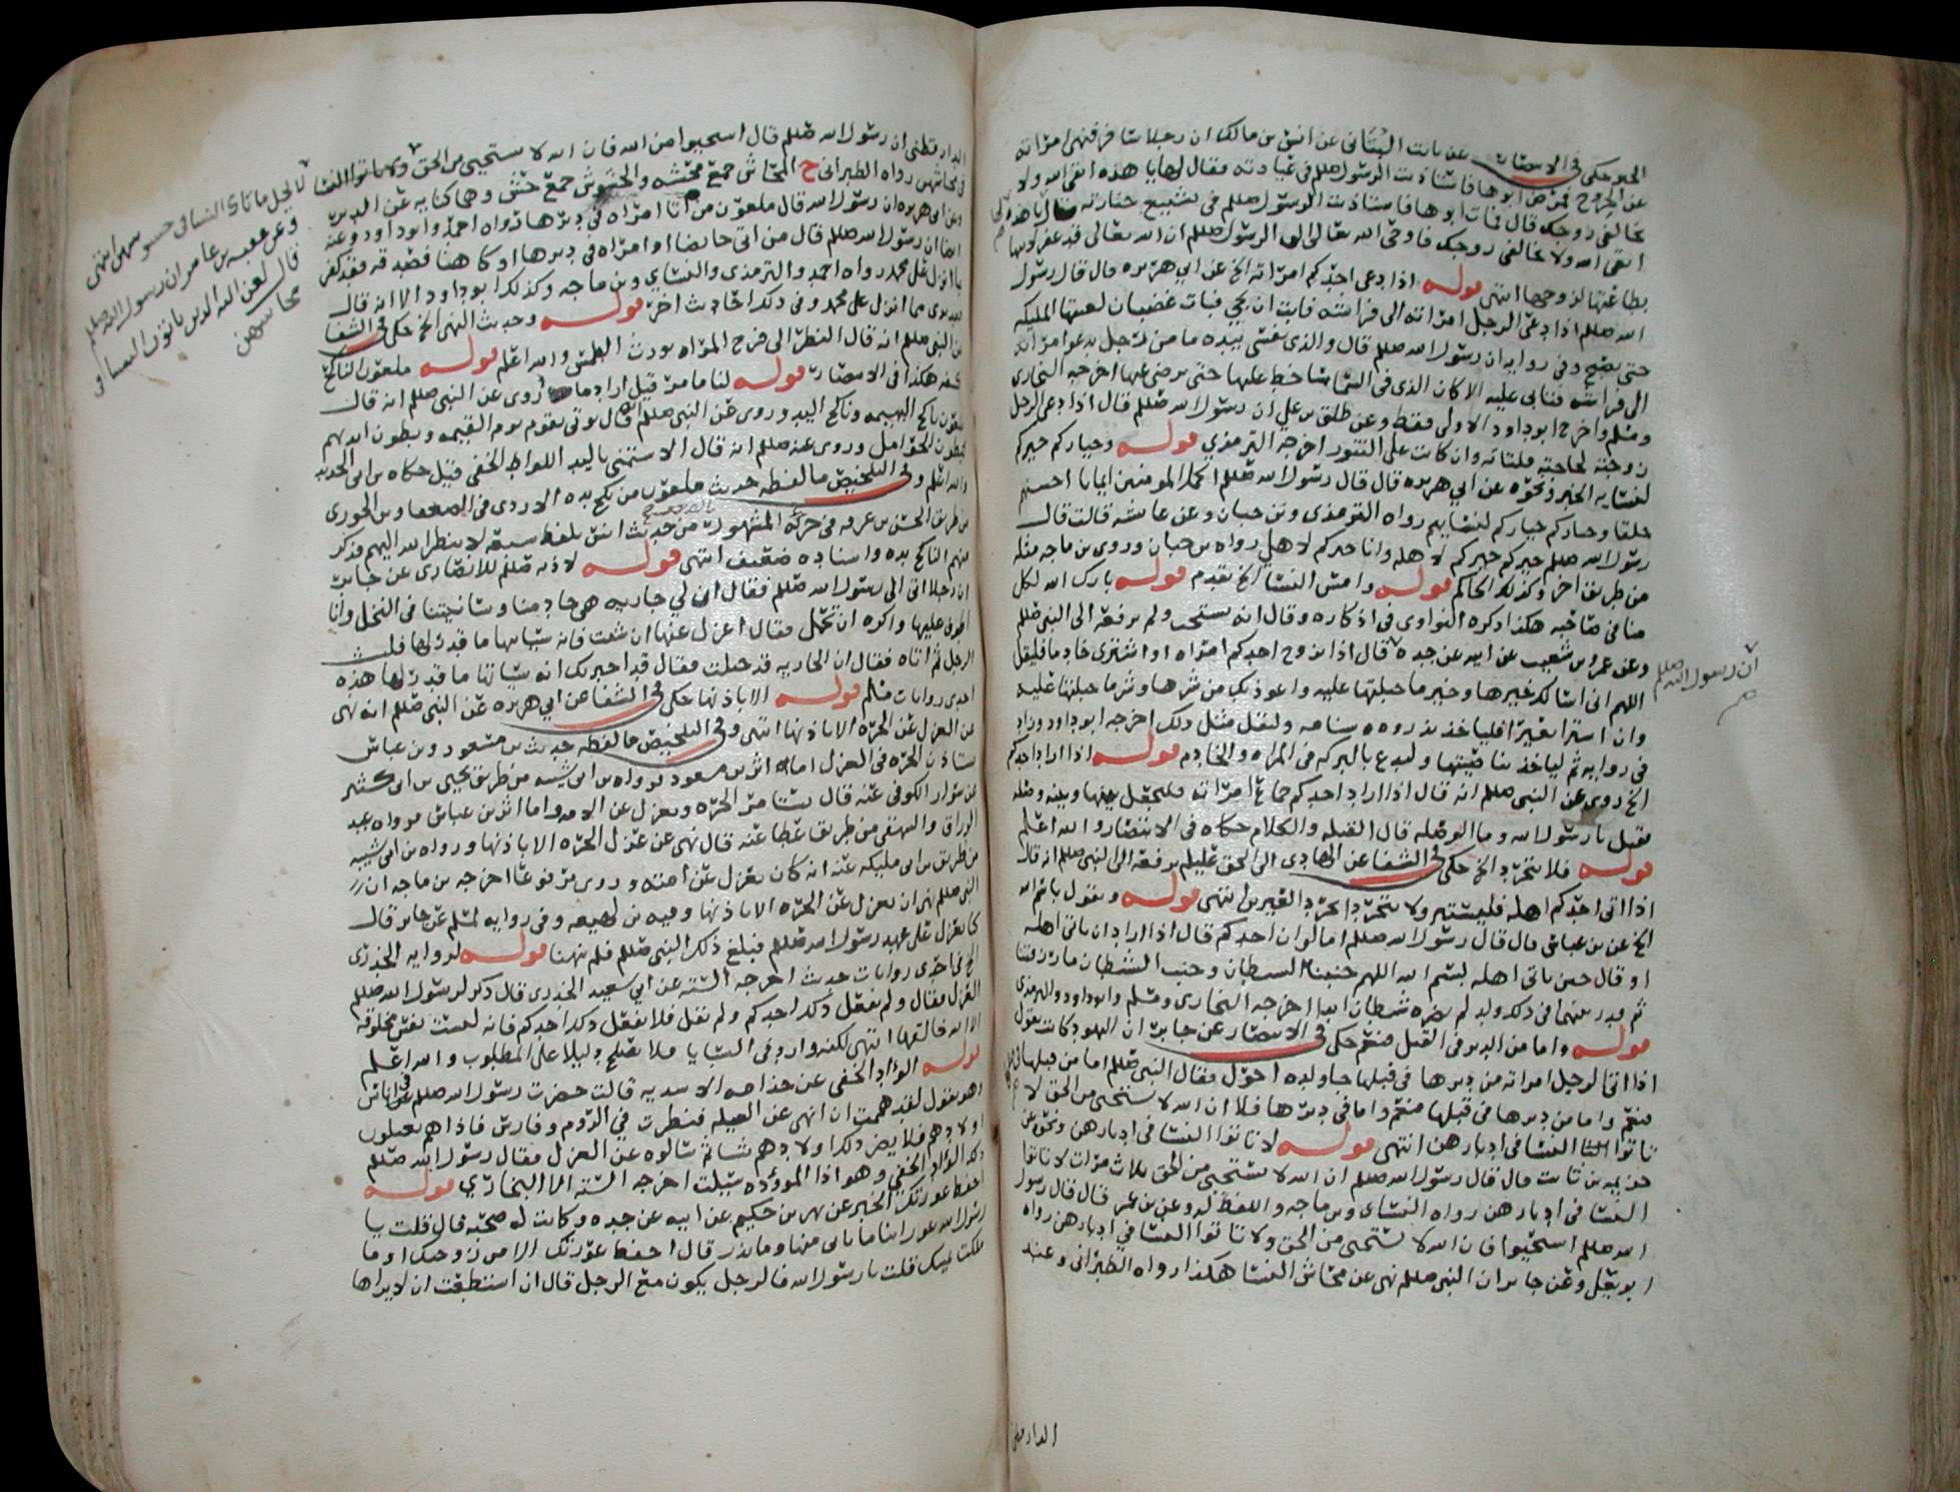 الخبر حكى في الانتصار عن ثابت البناني عن انس بن مالك ان رجلا سافر فنهى امراته
عن الخروج فمرض ابوها فاستاذنت الرسول صللم في عيادته فقال لها يا هذه اتقي الله ولا
تخالفي زوجك قال فمات ابوها فاستاذنت الرسول صللم في تشييع جنازته فقال يا هذه
اتقي الله ولا تخالفي زوجك فاوحى الله تعالى الى الرسول صللم ان الله تعالى قد غفر لابيها
بطاعتها لزوجها انتهى قوله اذا دعى احدكم امراته الخ عن ابي هريره قال قال رسول
الله صللم اذا دعى الرجل امراته الى فراشه فابت ان تجي فبات غضبان لعنتها المليكه
حتى تصبح وفي روايه ان رسول الله صللم قال والذي نفسي بيده ما من رجل يدعو امراته
الى فراشه فتابى عليه الا كان الذي في السما ساخط عليها حتى يرضى عنها اخرجه البخاري
ومسلم واخرج ابو داود الاولى فقط وعن طلق بن علي ان رسول الله صللم قال اذا دعى الرجل
زوجته لحاجته فلتاته وان كانت على التنور اخرجه الترمذي قوله وخياركم خيركم
لنسايه الخبر ونحوه عن ابي هريره قال قال رسول الله صللم اكمل المومنين ايمانا احسنهم
خلقا وخياركم خياركم لنسايهم رواه الترمذي وبن حبان وعن عايشه قالت قال
رسول الله صللم خيركم خيركم لاهله وانا خيركم لاهلي رواه بن حبان وروى بن ماجه مثله
من طريق اخر وكذلك الحاكم قوله وامش النسا الخ تقدم قوله بارك الله لكل
منا في صاحبه هكذا ذكره النواوي في اذكاره وقال انه يستحب ولم يرفعه الى النبي صللم
وعن عمرو بن شعيب عن ابيه عن جده قال اذا تزوج احدكم امراه او اشترى خادما فليقل
ان رسول الله صللم
اللهم اني اسالك خيرها وخير ما جبلتها عليه واعوذ بك من شرها وشر ما جبلتها عليه
وان اشترا بعيرا فلياخذ بذروه سنامه وليقل مثل ذلك اخرجه ابو داود وزاد
في روايه ثم لياخذ بناصيتها وليدع بالبركه في المراه والخادم قوله اذا اراد احدكم
الخ روي عن النبي صللم انه قال اذا اراد احدكم جماع امراته فليجعل بينها وبينه وصله
فقيل يا رسول الله وما الوصله قال القبله والكلام حكاه في الانتصار والله اعلم
قوله فلا يتجرد الخ حكى في الشفا عن الهادي الى الحق عليلم يرفعه الى النبي صللم انه قال
اذا اتى احدكم اهله فليستتر ولا يتجرد تجرد العيرين انتهى قوله ويقول باسم الله
الخ عن بن عباس قال قال رسول الله صللم اما لو ان احدكم قال اذا اراد ان ياتي اهله
او قال حين ياتي اهله بسم الله اللهم جنبنا الشيطان وجنب الشيطان ما رزقتنا
ثم قدر بينهما في ذلك ولد لم يضره شيطان ابدا اخرجه البخاري ومسلم وابو داود والترمذي
قوله واما من الدبر في القبل فنعم حكى في الانتصار عن جابر ان اليهود كانت تقول
اذا اتى الرجل امراته من دبرها في قبلها جا ولده احول فقال النبي صللم اما من قبلها
فنعم واما من دبرها في قبلها فنعم واما في دبرها فلا ان الله لا يستحيى من الحق لا
تاتوا النسا في ادبارهن انتهى قوله لا تاتوا النسا في ادبارهن ونحوه عن
خزيمه بن ثابت قال قال رسول الله صللم ان الله لا يستحيى من الحق ثلاث مرات لا تاتوا
النسا في ادبارهن رواه النساي وبن ماجه واللفظ له وعن بن عمر قال قال رسول
الله صللم استحيوا فان الله لا يستحيى من الحق ولا تاتوا النسا في ادبارهن رواه
ابو يعلى وعن جابر ان النبي صللم نهى عن محاش النسا هكذا رواه الطبراني وعند
الدارقطني
الدارقطني ان رسول الله صللم قال استحيوا من الله فان الله لا يستحيى من الحق ولا تاتوا النسا
في محاشهن رواه الطبراني ح المحاش جمع محشه والحشوش جمع حش وهما كنايه عن الدبر
وعن ابي هريره ان رسول الله قال ملعون من اتا امراه في دبرها رواه احمد وابو داود وعنه
ايضا ان رسول الله صللم قال من اتى حايضا او امراه في دبرها او كاهنا فصدقه فقد كفر
بما انزل على محمد رواه احمد والترمذي والنساي وبن ماجه وكذلك ابو داود الا انه قال
فقد برى مما انزل على محمد وفي ذلك احاديث اخر قوله وحديث النهي الخ حكى في الشفا
عن النبي صللم انه قال النظر الى فرج المراه يورث الطمس والله اعلم قوله ملعون الناكح
كفه هكذا في الانتصار قوله لنا ما مر قيل اراد ما روي عن النبي صللم انه قال
ملعون ناكح البهيمه وناكح اليد وروى عن النبي صللم انه قال يوتى بقوم يوم القيمه وبطون ايديهم
كبطون الحوامل وروي عنه صللم انه قال الاستمنى باليد اللواط الخفي قيل حكاه بن ابي الحديد
والله اعلم وفي التلخيص ما لفظه حديث ملعون من نكح يده الازدي في الضعفا وبن الجوزي
من طريق الحسن بن عرفه في جزئه المشهور من حديث انس بلفظ سبعه لا ينظر الله اليهم فذكر
منهم الناكح يده واسناده ضعيف انتهى قوله لاذنه صللم للانصاري عن جابر
ان رجلا اتى الى رسول الله صللم فقال ان لي جاريه هي خادمنا وسانيتنا في النخل وانا
اطوف عليها واكره ان تحمل فقال اعزل عنها ان شيت فانه سياتيها ما قدر لها فلبث
الرجل ثم اتاه فقال ان الجاريه قد حبلت فقال قد اخبرتك انه سياتيها ما قدر لها هذه
احدى روايات مسلم قوله الا باذنها حكى في الشفا عن ابي هريره عن النبي صللم انه نهى
عن العزل عن الحره الا باذنها انتهى وفي التلخيص ما لفظه حديث بن مسعود وبن عباس
تستاذن الحره في العزل اما اثر بن مسعود فرواه بن ابي شيبه من طريق يحيى بن ابي كثير
عن سوار الكوفي عنه قال تستامر الحره ويعزل عن الامه واما اثر بن عباس فرواه عبد
الرزاق والبيهقي من طريق عطا عنه قال نهى عن عزل الحره الا باذنها ورواه بن ابي شيبه
من طريق بن ابي مليكه عنه انه كان يعزل عن امته وروى مرفوعا اخرجه بن ماجه ان
النبي صللم نهى ان يعزل عن الحره الا باذنها وفيه بن لهيعه وفي روايه لمسلم عن جابر قال
كنا نعزل على عهد رسول الله صللم فبلغ ذلك النبي صللم فلم ينهنا قوله لروايه الخدري
الخ في احدى روايات حديث اخرجه السته عن ابي سعيد الخدري قال ذكر لرسول الله صللم
العزل فقال ولم يفعل ذلك احدكم ولم يقل فلا يفعل ذلك احدكم فانه ليست نفس مخلوقه
الا الله خالقها انتهى لكنه وارد في السبايا فلا يصلح دليلا على المطلوب والله اعلم
قوله الواد الخفي عن جذامه الاسديه قالت حضرت رسول الله صللم في اناس
وهو يقول لقد هممت ان انهى عن الغيله فنظرت في الروم وفارس فاذا هم يغيلون
اولادهم فلا يضر ذلك اولادهم شيا ثم سالوه عن العزل فقال رسول الله صللم
ذلك الواد الخفي وهو اذا الموؤده سيلت اخرجه السته الا البخاري قوله
احفظ عورتك الخبر عن بهز بن حكيم عن ابيه عن جده وكانت له صحبه قال قلت يا
رسول الله عوراتنا ما ناتي منها وما نذر قال احفظ عورتك الا من زوجتك او ما
ملكت يمينك قلت يا رسول الله فالرجل يكون مع الرجل قال ان استطعت ان لا يراها
لا يحل ماتاك النسا في حشوشهن انتهى
وعن عقبه بن عامر ان رسول الله صللم
قال لعن الله الذين ياتون النسا في
محاشهن